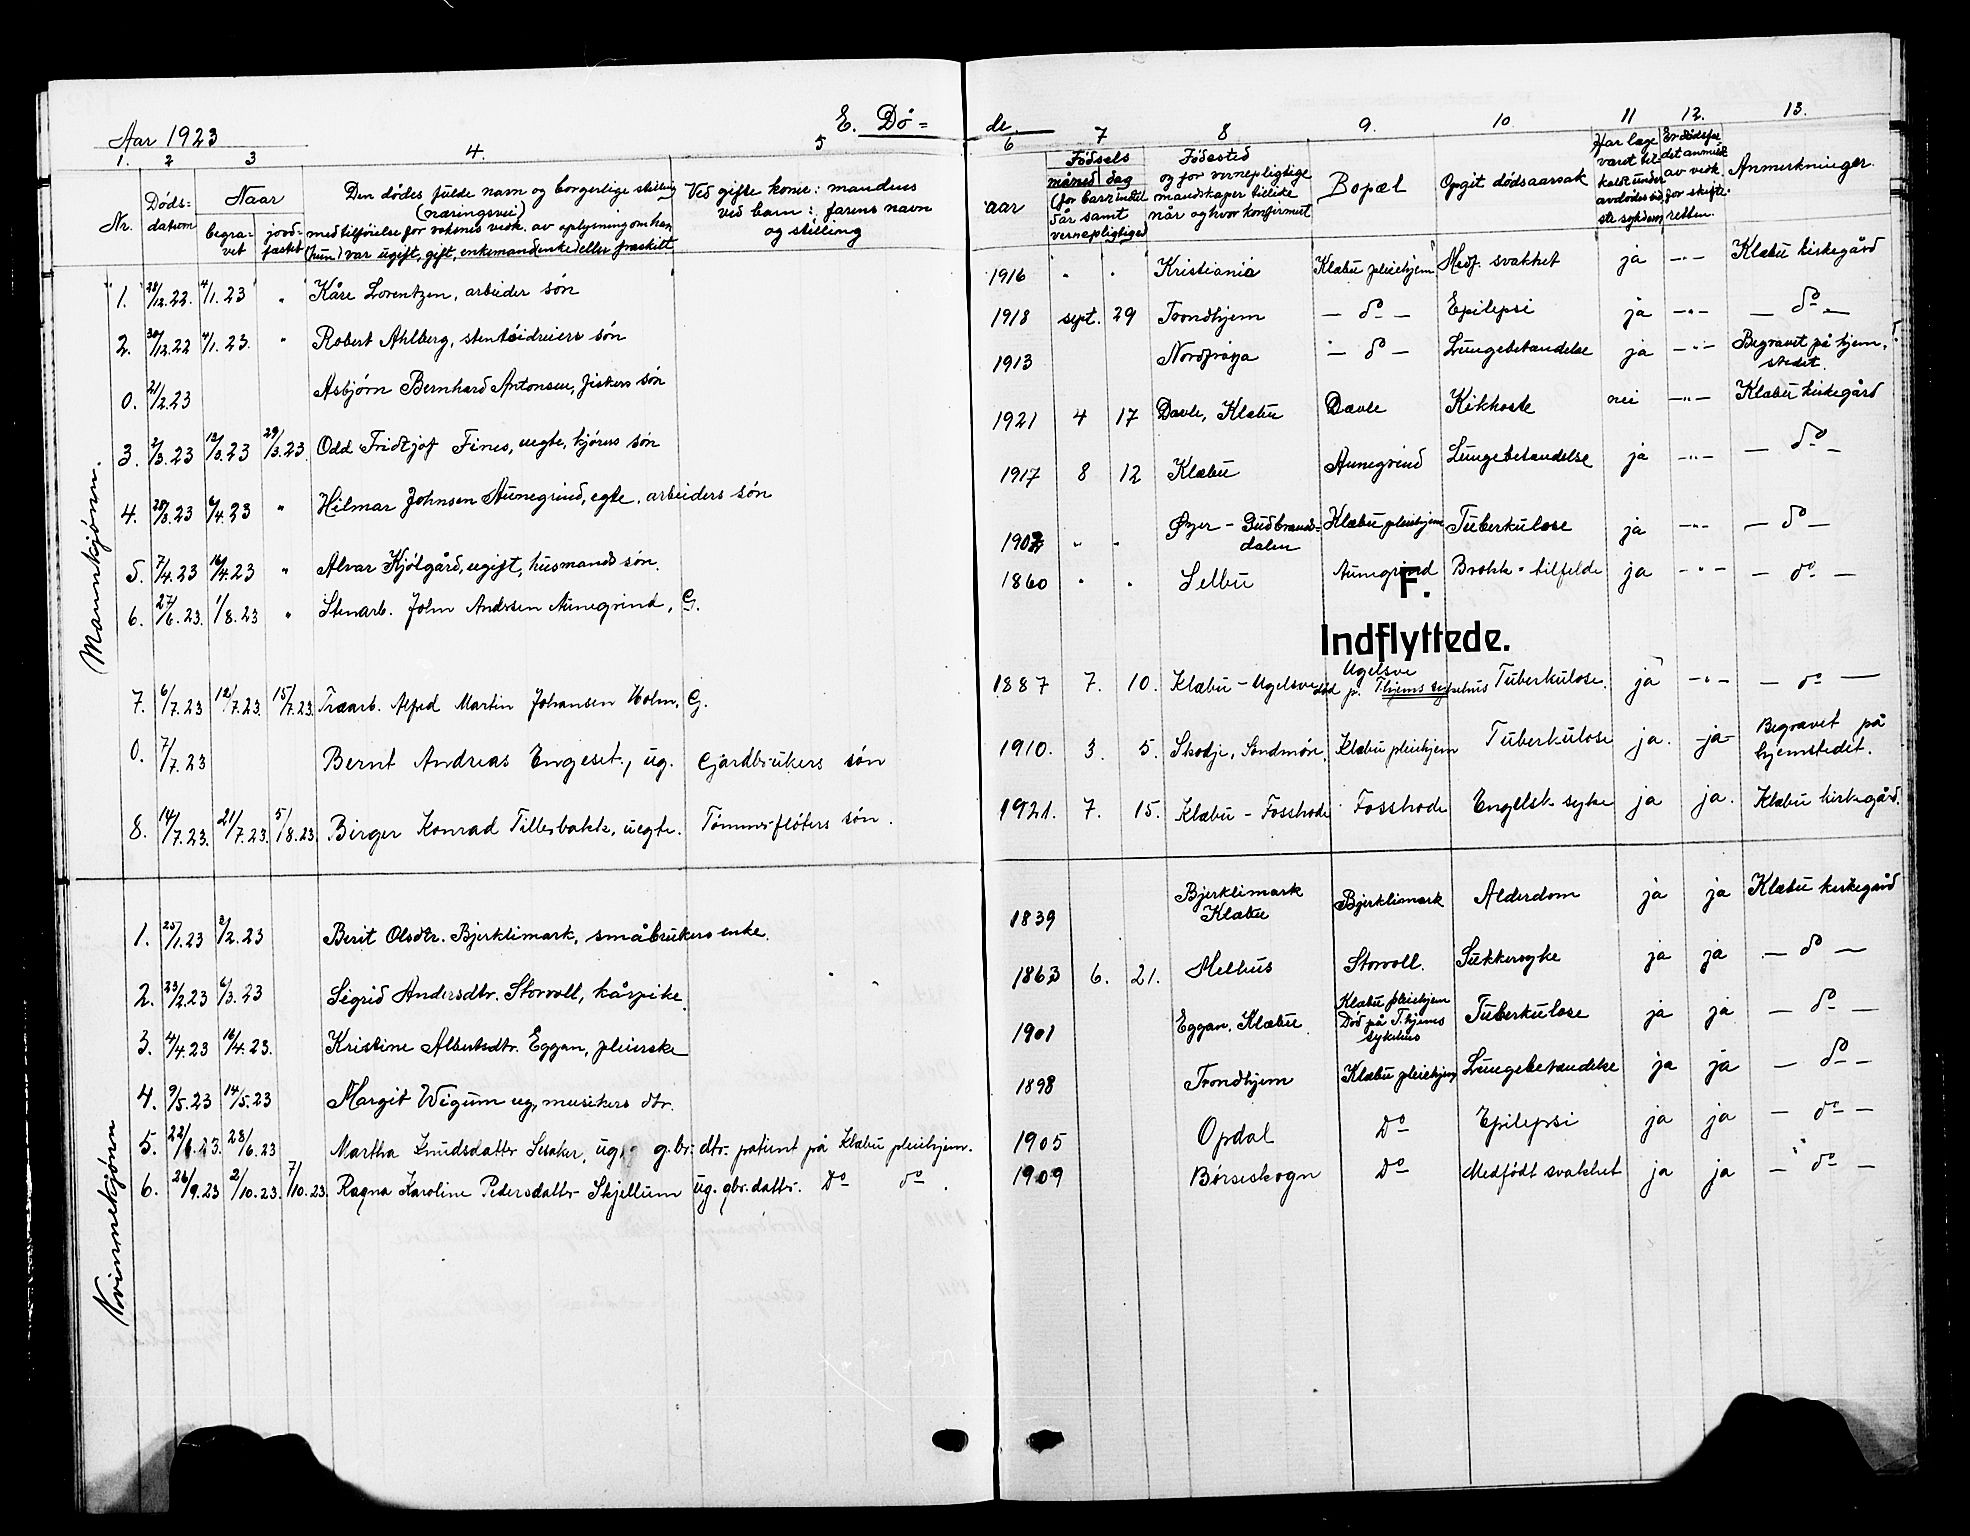 Aar 1923
E. Dö=
de.
1. 2 3 4. 5 6 7 8 9. 10. 11 12. 13.
Nr. Døds-datum Naar begra-vet jord-fæstet
Den dødes fulde navn og borgerlige stilling (næringsvei) med tilføielse for voksnes vedk. av oplysning om han (hun) var ugift, gift, enkemand enke eller fraskilt.
Ved gifte kone: mandens Ved barn: farens navn og stilling
aar Fødsels måned dag (for barn indtil 5 år samt vernepligtige)
Fødested og for vernepligtige mandskaper tillike når og hvor konfirmert
Bopæl Opgit dødsaarsak
Har læge været tilkaldt under avdødes sidste sykdom
Er dødsfaldet anmeldt av vedk. for skifteretten.
Anmerkninger.
Mannkjønn.
1. 28/12.22. 4/1.23 " Kåre Lorentzen, arbeider søn 1916 " " Kristiania Klæbu pleiehjem Medf. svakhet ja -"- Klæbu kirkegård
2. 30/12.22 4/1.23. " Robert Ahlberg, stentöidreiers søn 1918 sept. 29 Trondhjem - do - Epilepsi ja -"- - do -
0. 21/2.23 Asbjørn Bernhard Antonsen, fiskers søn 1913 Nordfrøya - do - Lungebetændelse ja -"- Begravet på hjemstedet.
3. 2/3.23 12/3.23 29/3.23 Odd Fridtjof Fines, uegte, kjørers søn 1921 4 17 Davle, Klæbu Davle Kikhoste nei -"- Klæbu kirkegård
4. 28/3.23 6/4.23 " Hilmar Johnsen Aunegrind, egte, arbeiders søn 1917 8 12 Klæbu Aunegrind Lungebetændelse ja -"- - do -
5. 7/4.23 16/4.23 " Alvar Kjølgård, ugift, husmands søn. " " Øyer - Gudbrandsdalen Klæbu pleiehjem Tuberkulose ja -"- - do -
6. 27/6.23. 1/8.23 " Stenarb. John Andersen Aunegrind, G. 1860 " " Selbu Aunegrind Brokk-tilfelde ja -"- - do -
F.
Indflyttede.
7. 6/7.23 12/7.23. 15/7.23. Træarb. Alfred Martin Johansen Holm, G. 1887 7. 10. Klæbu - Ugelsve Ugelsve død på Thjems sykehus Tuberkulose. ja -"- - do -
0. 7/7.23 Bernt Andreas Engeset, ug. Gårdbrukers søn 1910. 3. 5. Skodje, Søndmør. Klæbu pleiehjem Tuberkulose ja. -ja- Begravet på hjemstedet.
8. 14/7.23. 21/7.23. 5/8.23. Birger Konrad Tillerbakk, uegte. Tømmerfløters søn. 1921. 7. 15. Klæbu - Fosshode Fosshode Engelsk syke ja ja. Klæbu kirkegård.
Kvinnekjønn
1. 25/1.23 2/2.23 Berit Olsdtr. Bjerklimark, småbrukers enke. 1839 Bjerklimark Klæbu Bjerklimark Alderdom ja ja Klæbu kirkegård
2. 23/2.23 6/3.23 Sigrid Andersdtr. Storvoll, kårpike. 1863 6. 21. Melhus Storvoll. Sukkersyke ja ja - do -
3. 4/4.23 16/4.23. Kristine Albertsdtr. Eggan, pleierske 1901 Eggan, Klæbu Klæbu pleiehjem Død på T.hjems sykehus Tuberkulose ja ja - do -
4. 9/5.23 14/5.23 Margit Wigum ug., musikers dtr. 1898 Trondhjem Klæbu pleiehjem Lungebetændelse ja ja - do -
5. 22/6.23. 28/6.23 Martha Knudsdattr Sesaker, ug., g.br. dtr. patient på Klæbu pleiehjem. 1905 Opdal Do Epilepsi ja ja - do -
6. 26/9.23 2/10.23. 7/10.23. Ragna Karoline Pedersdattr Skjellum ug. gbr. dattr. Do do. 1909 Børseskogn Do Medfødt svakhet ja ja - do -